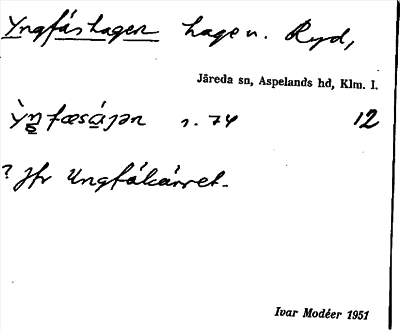 Yngfåshagen hage n. Ryd,
Järeda sn, Aspelands hd, Klm. l.
Y̖ŋfæsájən s. 74 12
? Jfr Ungfåkärret.
Ivar Modéer 1951